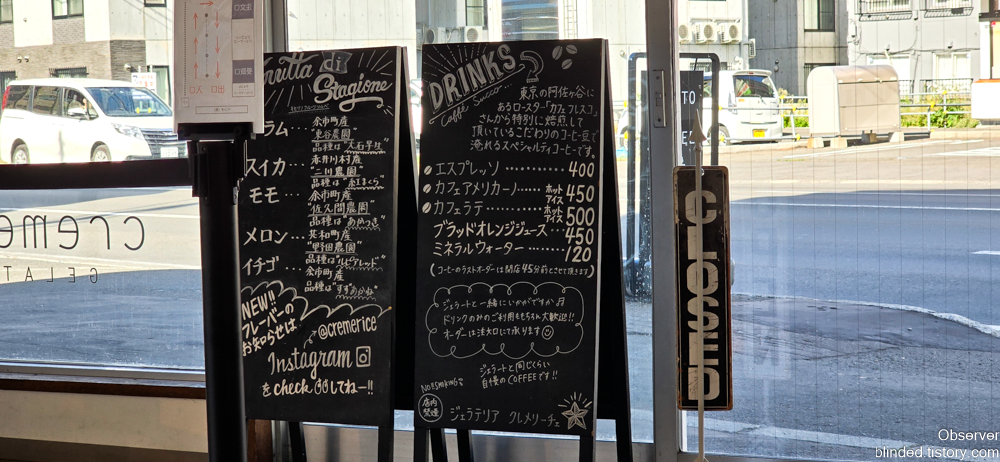 Frutta di
Stagione
プラム・・・余市町産
"東谷農園"
品種は"大石早生"
スイカ・・・赤井川村産
"二川農園"
モモ・・・余市町産
"佐久間農園"
品種は"あかつき"
メロン・・・共和町産
"野田農園"
品種は"ルピアレッド"
イチゴ・・・余市町産
品種は"すずあかね"
NEW!!
フレーバーの
お知らせは
@cremerice
Instagram
をcheckしてねー!!
DRINKS
Caffè Succo
東京の阿佐ヶ谷に
あるロースター「カフェフレスコ」
さんから特別に焙煎して
頂いているこだわりのコーヒー豆で
淹れるスペシャルティコーヒーです。
エスプレッソ・・・・・・400
カフェアメリカーノ・・ホットアイス 450
カフェラテ・・・・・・ホットアイス 500
ブラッドオレンジジュース・・・450
ミネラルウォーター・・・・・・120
(コーヒーのラストオーダーは閉店45分前とさせて頂きます)
ジェラートと一緒にいかがですか♬
ドリンクのみのご利用ももちろん大歓迎!!
オーダーは注文口にて承ります☺
ジェラートと同じくらい
自慢のCOFFEEです!!
NO SMOKING
店内
禁煙
ジェラテリア クレメリーチェ
TO
CLOSED
creme
GELAT
入口
出口
Observer
blinded.tistory.com